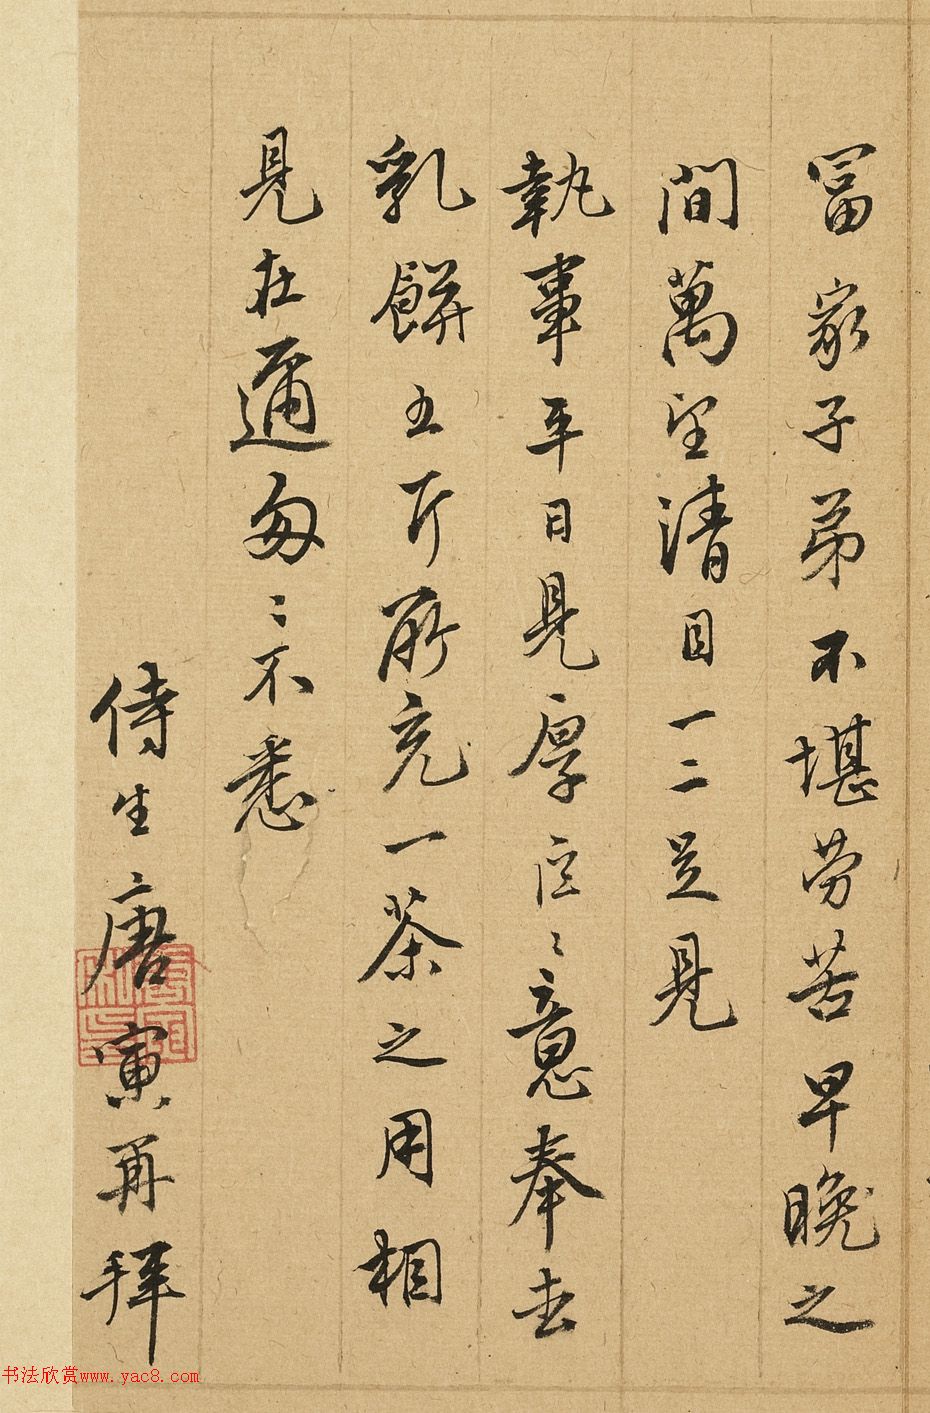 富家子弟不堪勞苦早晚之
間萬望清目一二足見
執事平日見厚區〻意奉去
乳餅五斤所充一茶之用相
見在邇匆〻不悉
侍生唐寅再拜
书法欣赏www.yac8.com